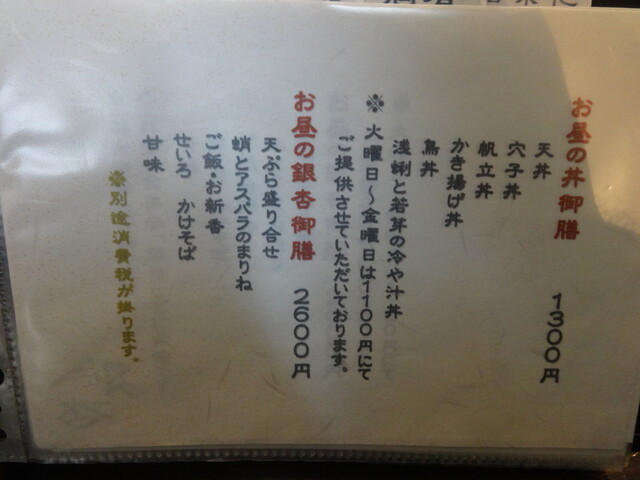 お昼の丼御膳 1300円
天丼
穴子丼
帆立丼
かき揚げ丼
鳥丼
浅蜊と若芽の冷や汁丼
※火曜日～金曜日は1100円にて
ご提供させていただいております。
お昼の銀杏御膳 2600円
天ぷら盛り合せ
蛸とアスパラのまりね
ご飯・お新香
せいろ かけそば
甘味
※別途消費税が掛ります。